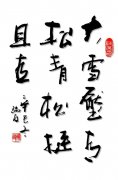 大雪壓青
松青松挺
且直